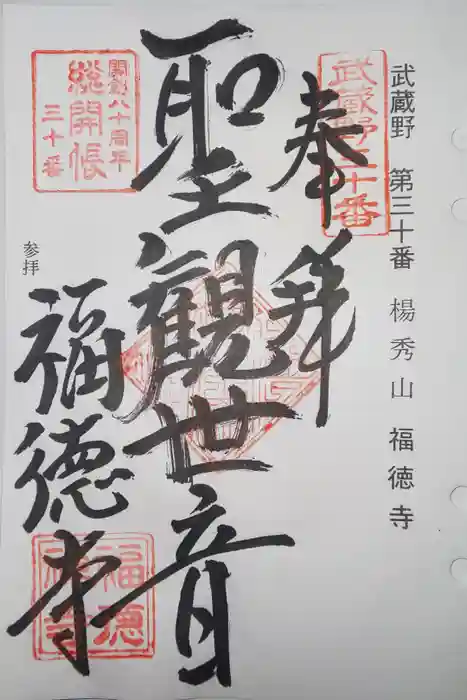 武蔵野 第三十番 楊秀山 福徳寺
武蔵野三十番
奉拝
聖観世音
開創八十周年
総開帳
三十番
参拝
福徳寺
福徳
寺